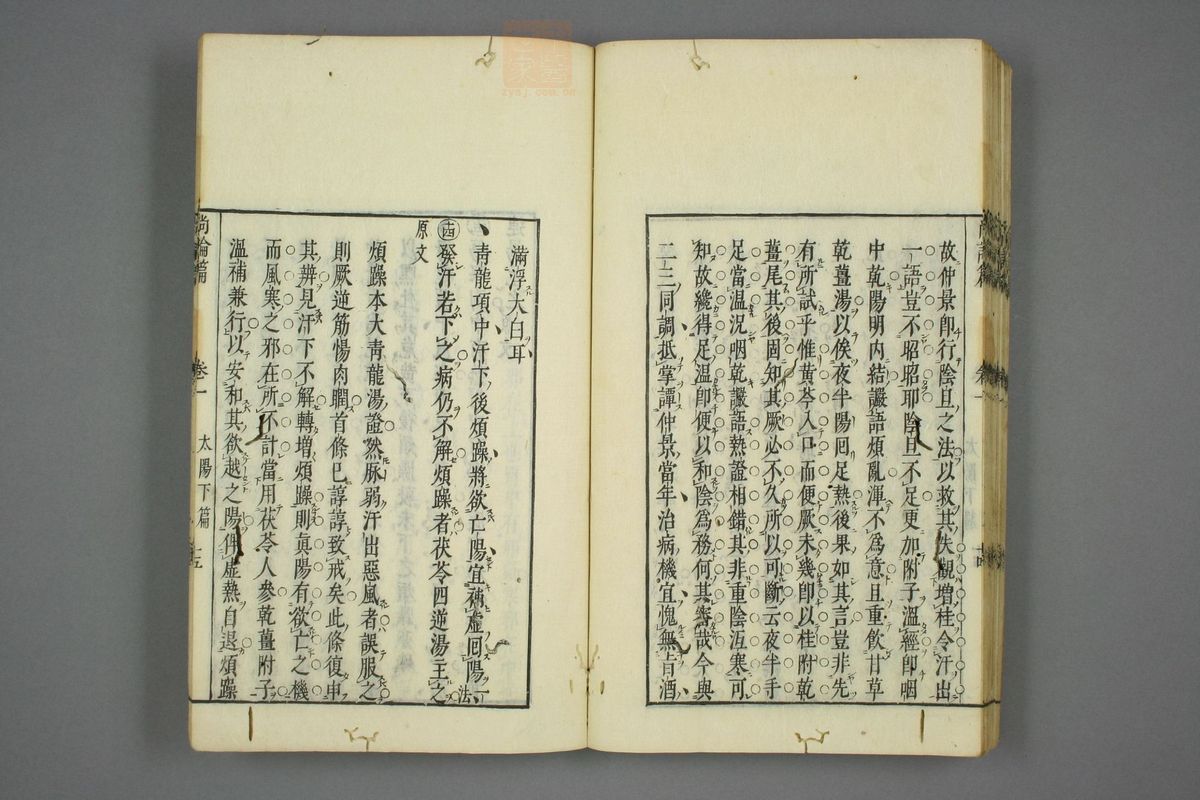 故仲景卽行陰旦之法以救其失觀增桂令汗出
一語豈不昭昭耶陰旦不足更加附子溫經卽咽
中乾陽明內結讝語煩亂渾不爲意且重飲甘草
乾薑湯以俟夜半陽囘足熱後果如其言豈非先
有所試乎惟黃芩入口而便厥未幾卽以桂附乾
薑尾其後固知其厥必不久所以可斷云夜半手
足當溫況咽乾讝語熱證相錯其非重陰沍寒可
知故纔得足溫卽便以和陰爲務何其審哉今與
二三同調抵掌譚仲景當年治病機宜愧無旨酒
滿浮大白耳
青龍項中汗下後煩躁將欲亡陽宜補虛囘陽一法
發汗若下之病仍不解煩躁者茯苓四逆湯主之
原文
煩躁本大青龍湯證然脉弱汗出惡風者誤服之
則厥逆筋惕肉瞤首條已諄諄致戒矣此條復申
其辨見汗下不解轉增煩躁則眞陽有欲亡之機
而風寒之邪在所不計當用茯苓人參乾薑附子
溫補兼行以安和其欲越之陽俾虛熱自退煩躁
尚論篇 卷一 太陽下篇
zysj.com.cn